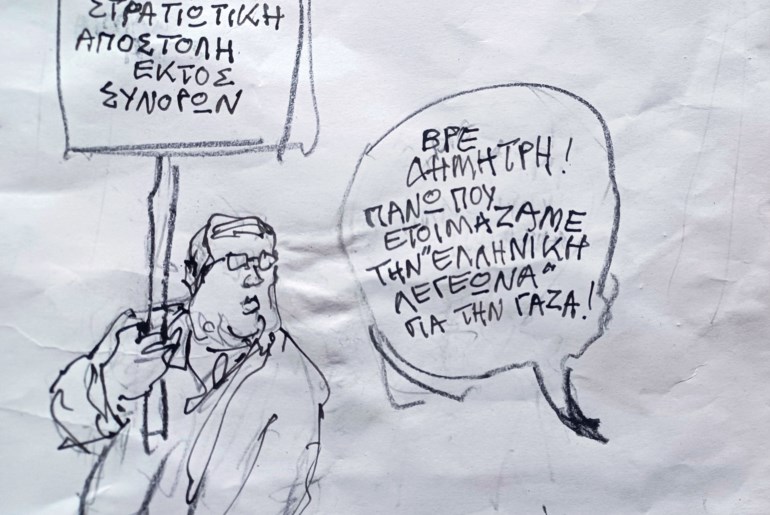 ΣΤΡΑΤΙΩΤΙΚΗ
ΑΠΟΣΤΟΛΗ
ΕΚΤΟΣ
ΣΥΝΟΡΩΝ
ΒΡΕ
ΔΗΜΗΤΡΗ!
ΠΑΝΩ ΠΟΥ
ΕΤΟΙΜΑΖΑΜΕ
ΤΗΝ "ΕΛΛΗΝΙΚΗ
ΛΕΓΕΩΝΑ"
ΓΙΑ ΤΗΝ ΓΑΖΑ!